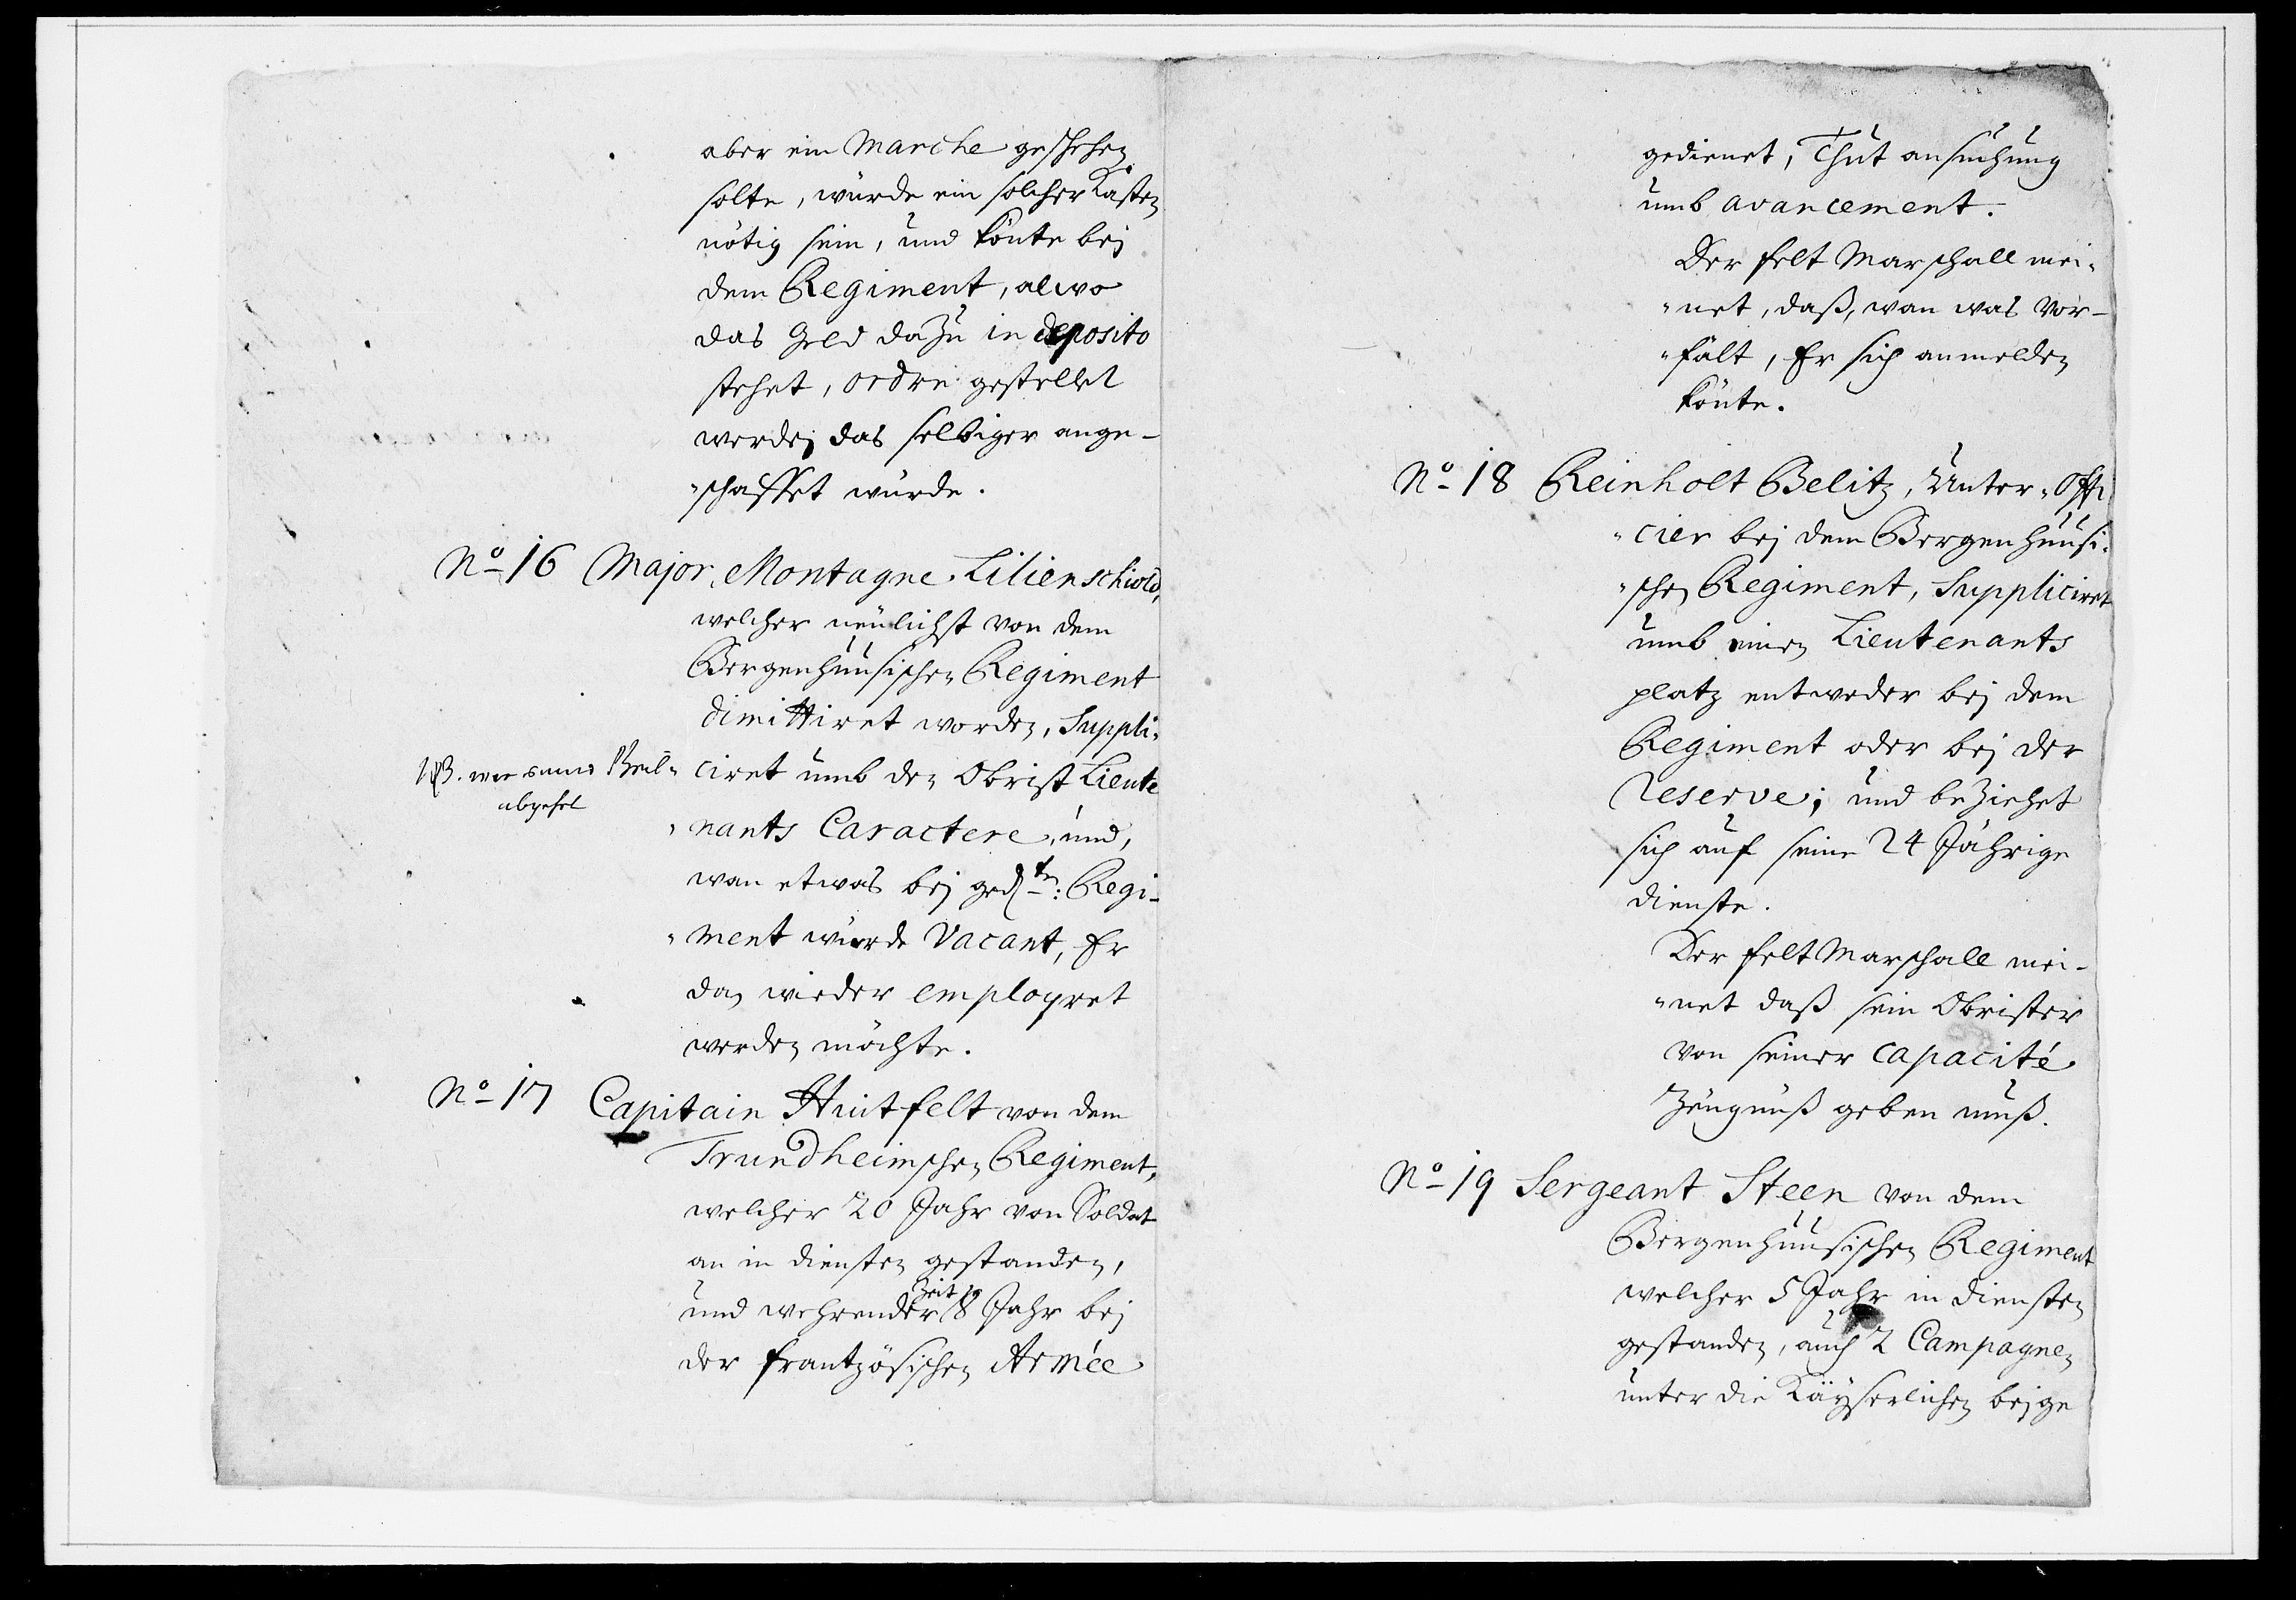 aber ein Marche geschehen
solte, würde ein solcher Kasten
nötig sein, und könte bej
dem Regiment, alwo
das Geld dazu in deposito
stehet, ordre gestellet
werden das selbiger ange-
"schaffet würde.
No 16 Major, Montagne Lilienschiold,
welcher neulichst von dem
Bergenhuusischen Regiment
dimittiret worden, Suppli-
NB.
ciret umb den Obrist Lieute
"nants Caractere, und,
wan etwas bej gedten: Regi-
"ment würde vacant, Er
dan wieder employret
werden möchte.
No 17 Capitain Huitfelt von dem
Trundheimschen Regiment,
welcher 20 Jahr von Soldat
an in diensten gestanden,
Zeit
und wehrender 8 Jahr bej
der frantzösischen Armée
gedienet, Thut ansuchung
umb avancement.
Der felt Marschall mei-
"net, daß, wan was vor-
"fält, Er sich anmelden
könte.
No 18 Reinholt Belitz, Unter-Offi
"cier bej dem Bergenhuusi-
"schen Regiment, Suppliciret
umb einen Lieutenants
platz entweder bej dem
Regiment oder bej der
Reserve; und beziehet
sich auf seine 24 Jährige
dienste.
Der felt Marschall mei-
"net daß sein Obrister
von seiner capacité
Zeugnuß geben muß.
No 19 Sergeant Steen von dem
Bergenhuusischen Regiment
welcher 5 Jahr in diensten
gestanden, auch 2 Campagnen
unter die Käyserlichen bejge